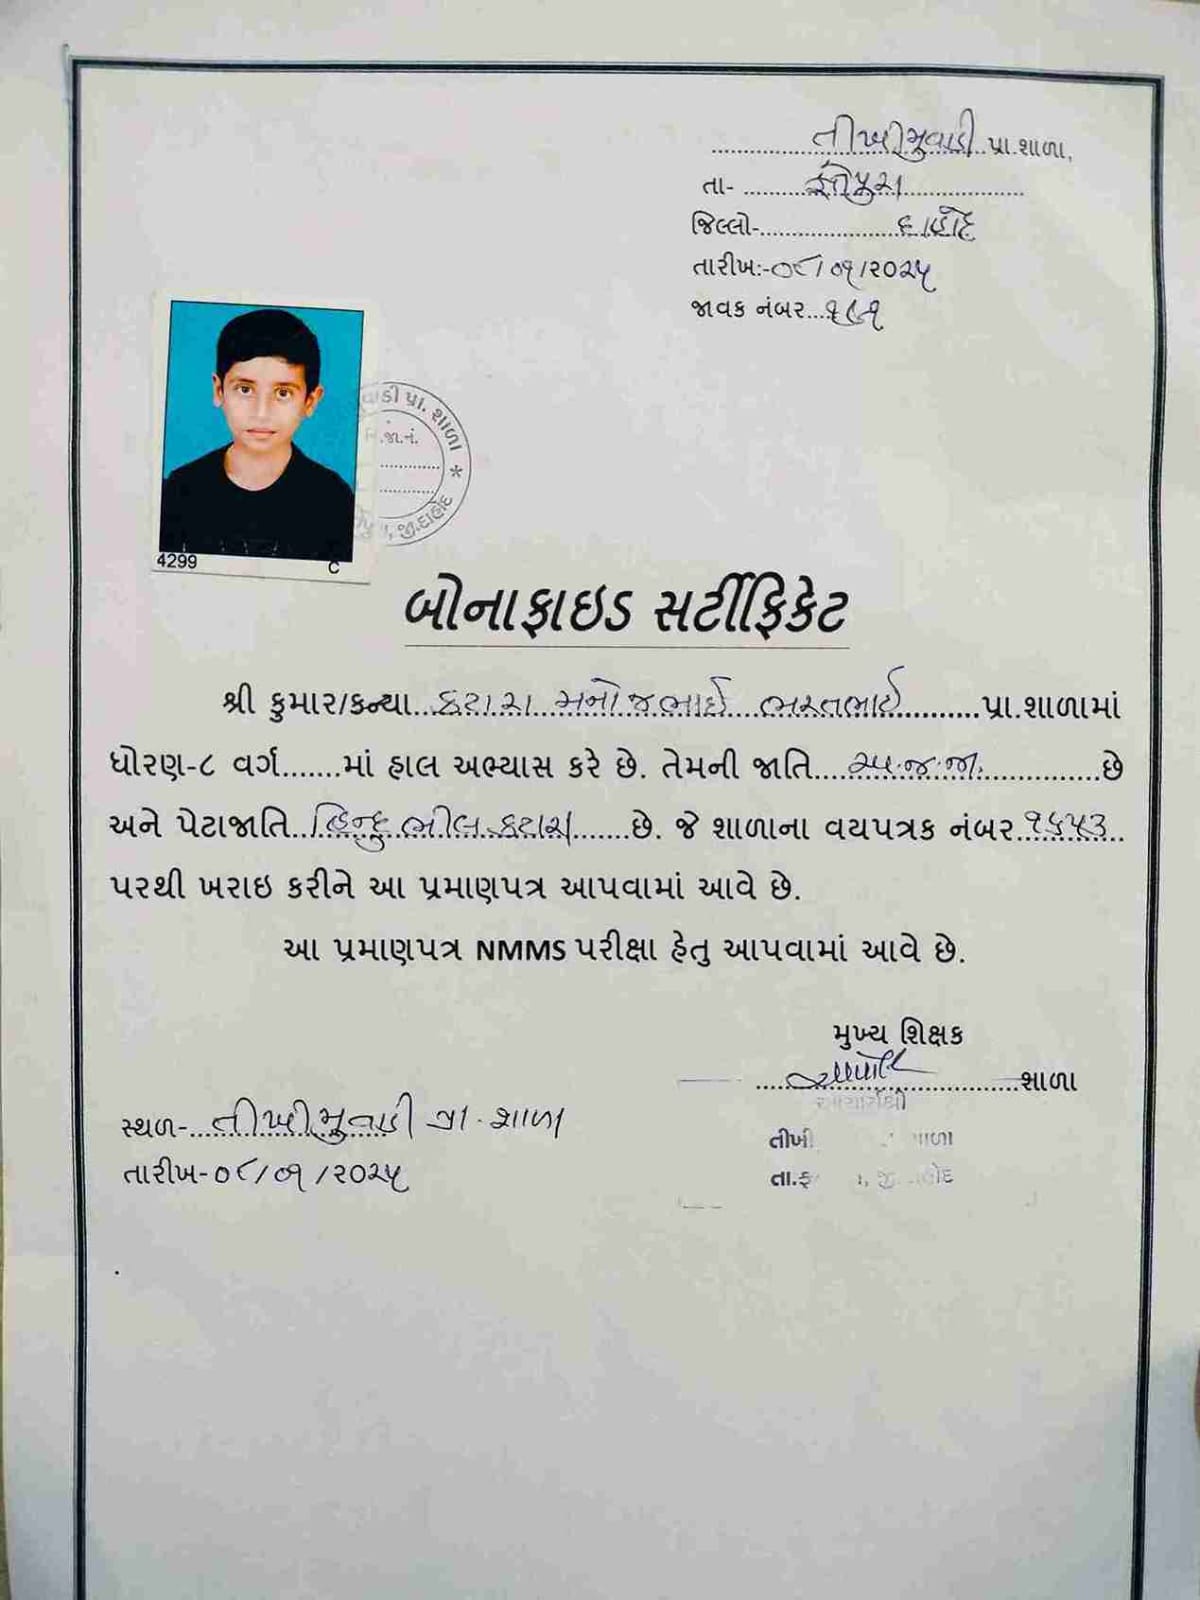 તીખીમુવાડી પ્રા.શાળા,
તા- ફતેપુરા
જિલ્લો- દાહોદ
તારીખ:-૦૮/૦૧/૨૦૨૫
જાવક નંબર...૧૯૧
વાડી પ્રા. શાળા *
જા.નં.
જી.દાહોદ
4299 C
બોનાફાઇડ સર્ટીફિકેટ
શ્રી કુમાર/કન્યા...કટારા મનોજભાઈ ભરતભાઈ...પ્રા.શાળામાં
ધોરણ-૮ વર્ગ.......માં હાલ અભ્યાસ કરે છે. તેમની જાતિ....અ.જ.જા.............છે
અને પેટાજાતિ..હિન્દુ ભીલ કટારા......છે. જે શાળાના વયપત્રક નંબર ૧૬૫૩..
પરથી ખરાઇ કરીને આ પ્રમાણપત્ર આપવામાં આવે છે.
આ પ્રમાણપત્ર NMMS પરીક્ષા હેતુ આપવામાં આવે છે.
મુખ્ય શિક્ષક
શાળા
આચાર્યશ્રી
સ્થળ-..તીખીમુવાડી પ્રા.શાળા
તીખી
તારીખ-૦૮/૦૧/૨૦૨૫